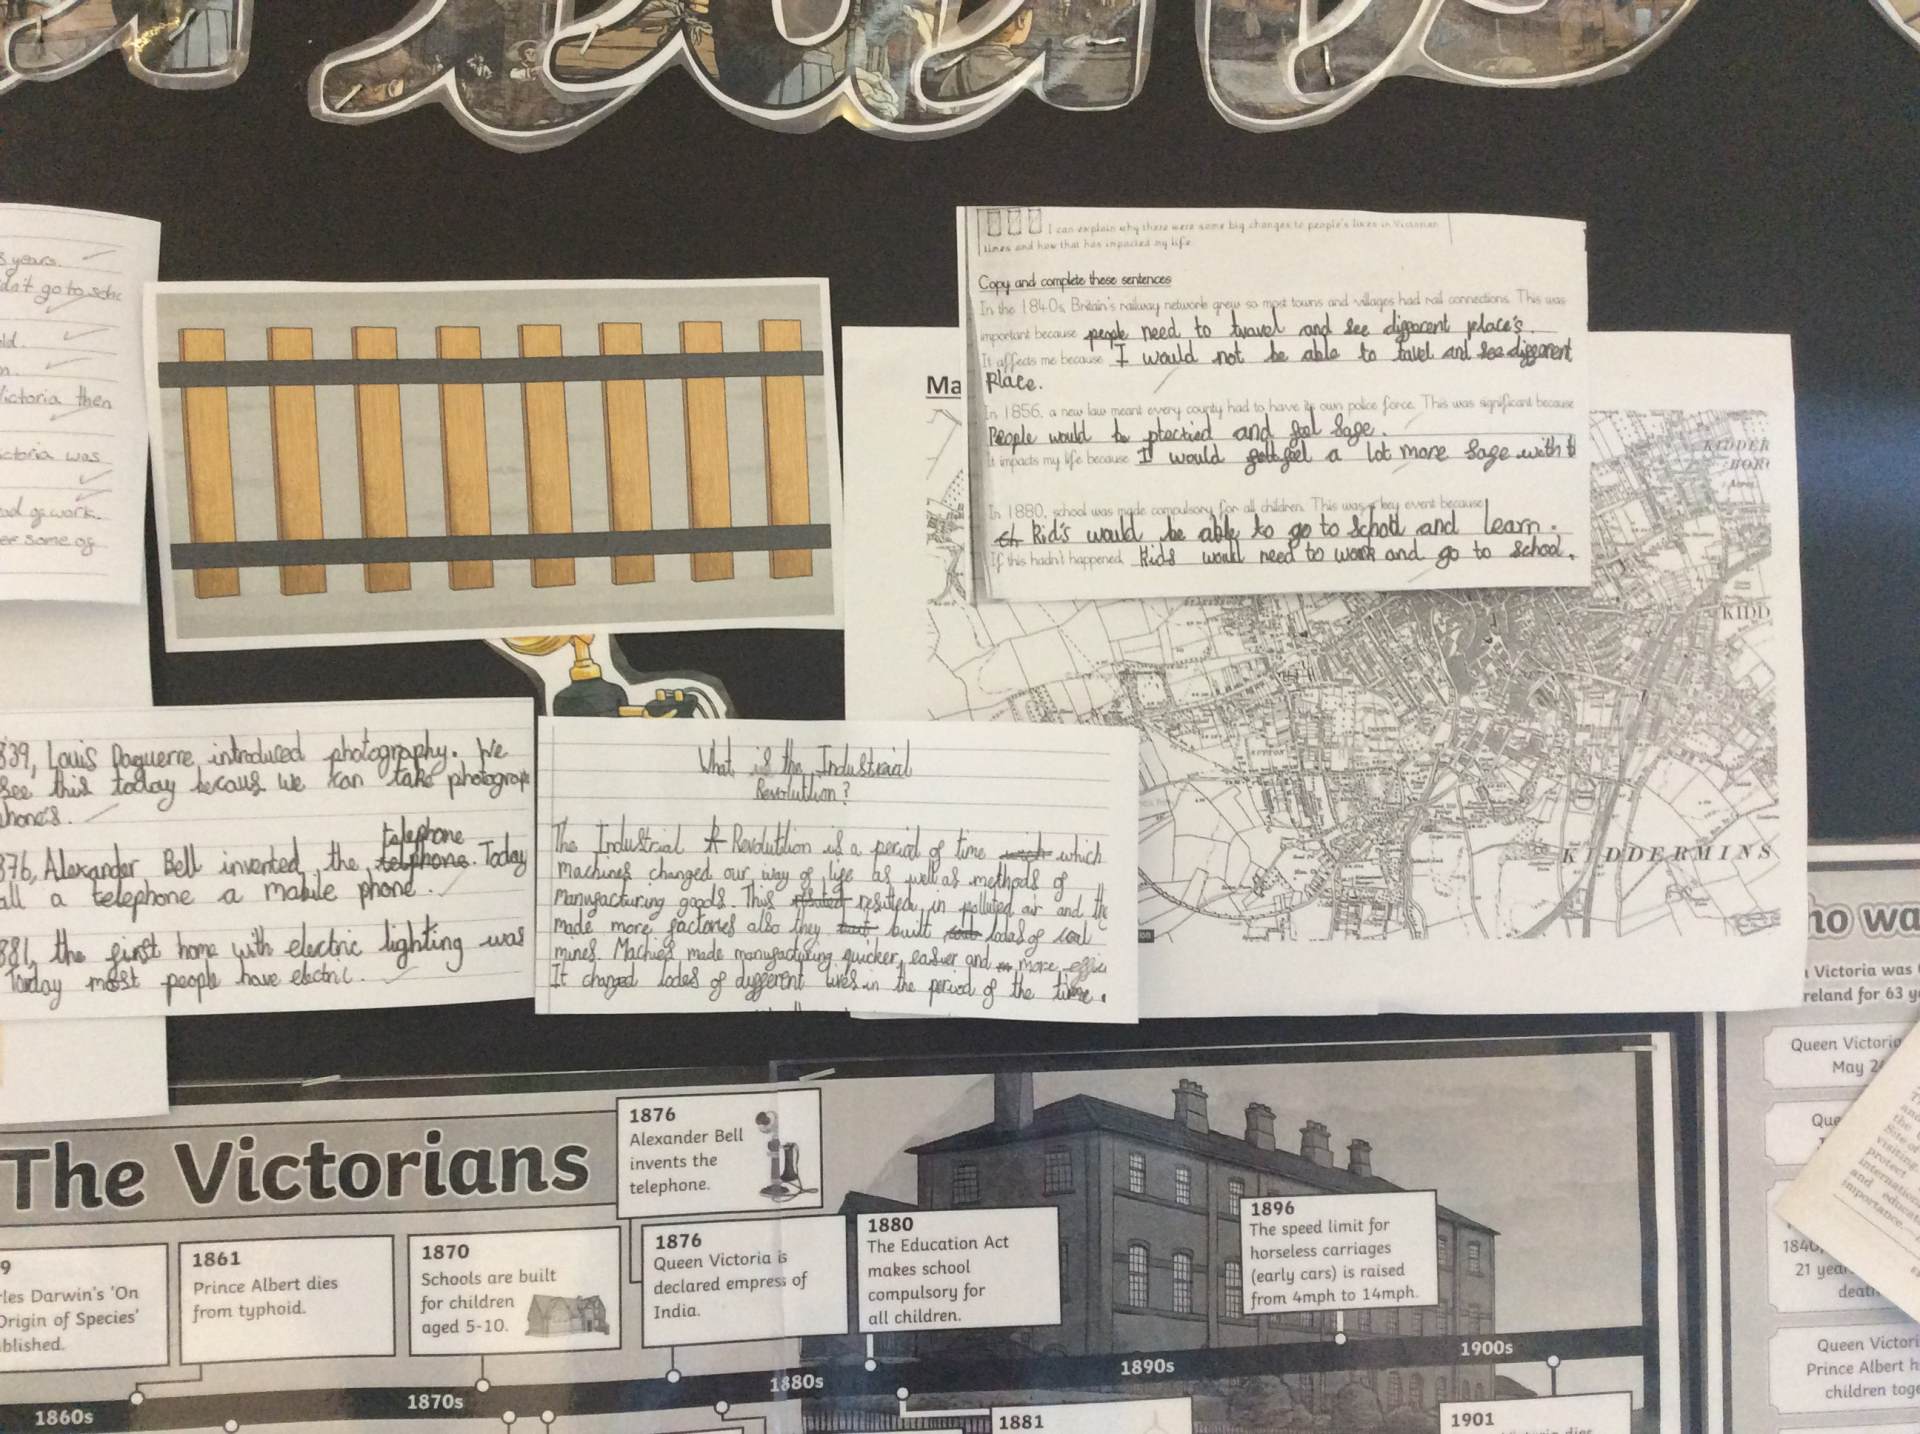 s years.
didn't go to scho
old.
Victoria then
Victoria was
ad of work.
some of
I can explain why there were some big changes to people's lives in Victorian
times and how that has impacted my life
Copy and complete these sentences
In the 1840s, Britain's railway network grew so most towns and villages had rail connections. This was
important because people need to travel and see different place's.
It affects me because I would not be able to tavel and see different
Place.
In 1856, a new law meant every county had to have its own police force. This was significant because
People would be ptectied and feel safe.
It impacts my life because I would feel a lot more safe with
In 1880, school was made compulsory for all children. This was a key event because
Kid's would be able to go to school and learn.
If this hadn't happened Kids would need to work and go to school.
Ma
KIDDER
BORO
KIDD
KIDDERMINS
839, Louis Daguerre introduced photography. We
see this today becaus we can take photograph
phone's.
876, Alexander Bell invented the telephone telephone. Today
all a telephone a mobile phone.
881, the first home with electric lighting was
Today most people have electric.
What is the Industrial
Revolution?
The Industrial Revolution is a period of time which
machines changed our way of life as well as methods of
manufacturing goods. This resulted in polluted air and the
made more factories also they built lodes of coal
mines. Machies made manufacturing quicker, easier and more effic
It changed lodes of different lives in the period of the time.
The Victorians
9
rles Darwin's 'On
Origin of Species'
blished.
1861
Prince Albert dies
from typhoid.
1870
Schools are built
for children
aged 5-10.
1876
Alexander Bell
invents the
telephone.
1876
Queen Victoria is
declared empress of
India.
1880
The Education Act
makes school
compulsory for
all children.
1896
The speed limit for
horseless carriages
(early cars) is raised
from 4mph to 14mph.
1860s
1870s
1880s
1890s
1900s
1881
1901
ho wa
Victoria was
reland for 63 y
Queen Victoria
May 24
Que
1840
21 year
death
Queen Victori
Prince Albert h
children toge
and
the
Site of
visiting
protect
internation
and educat
importance.